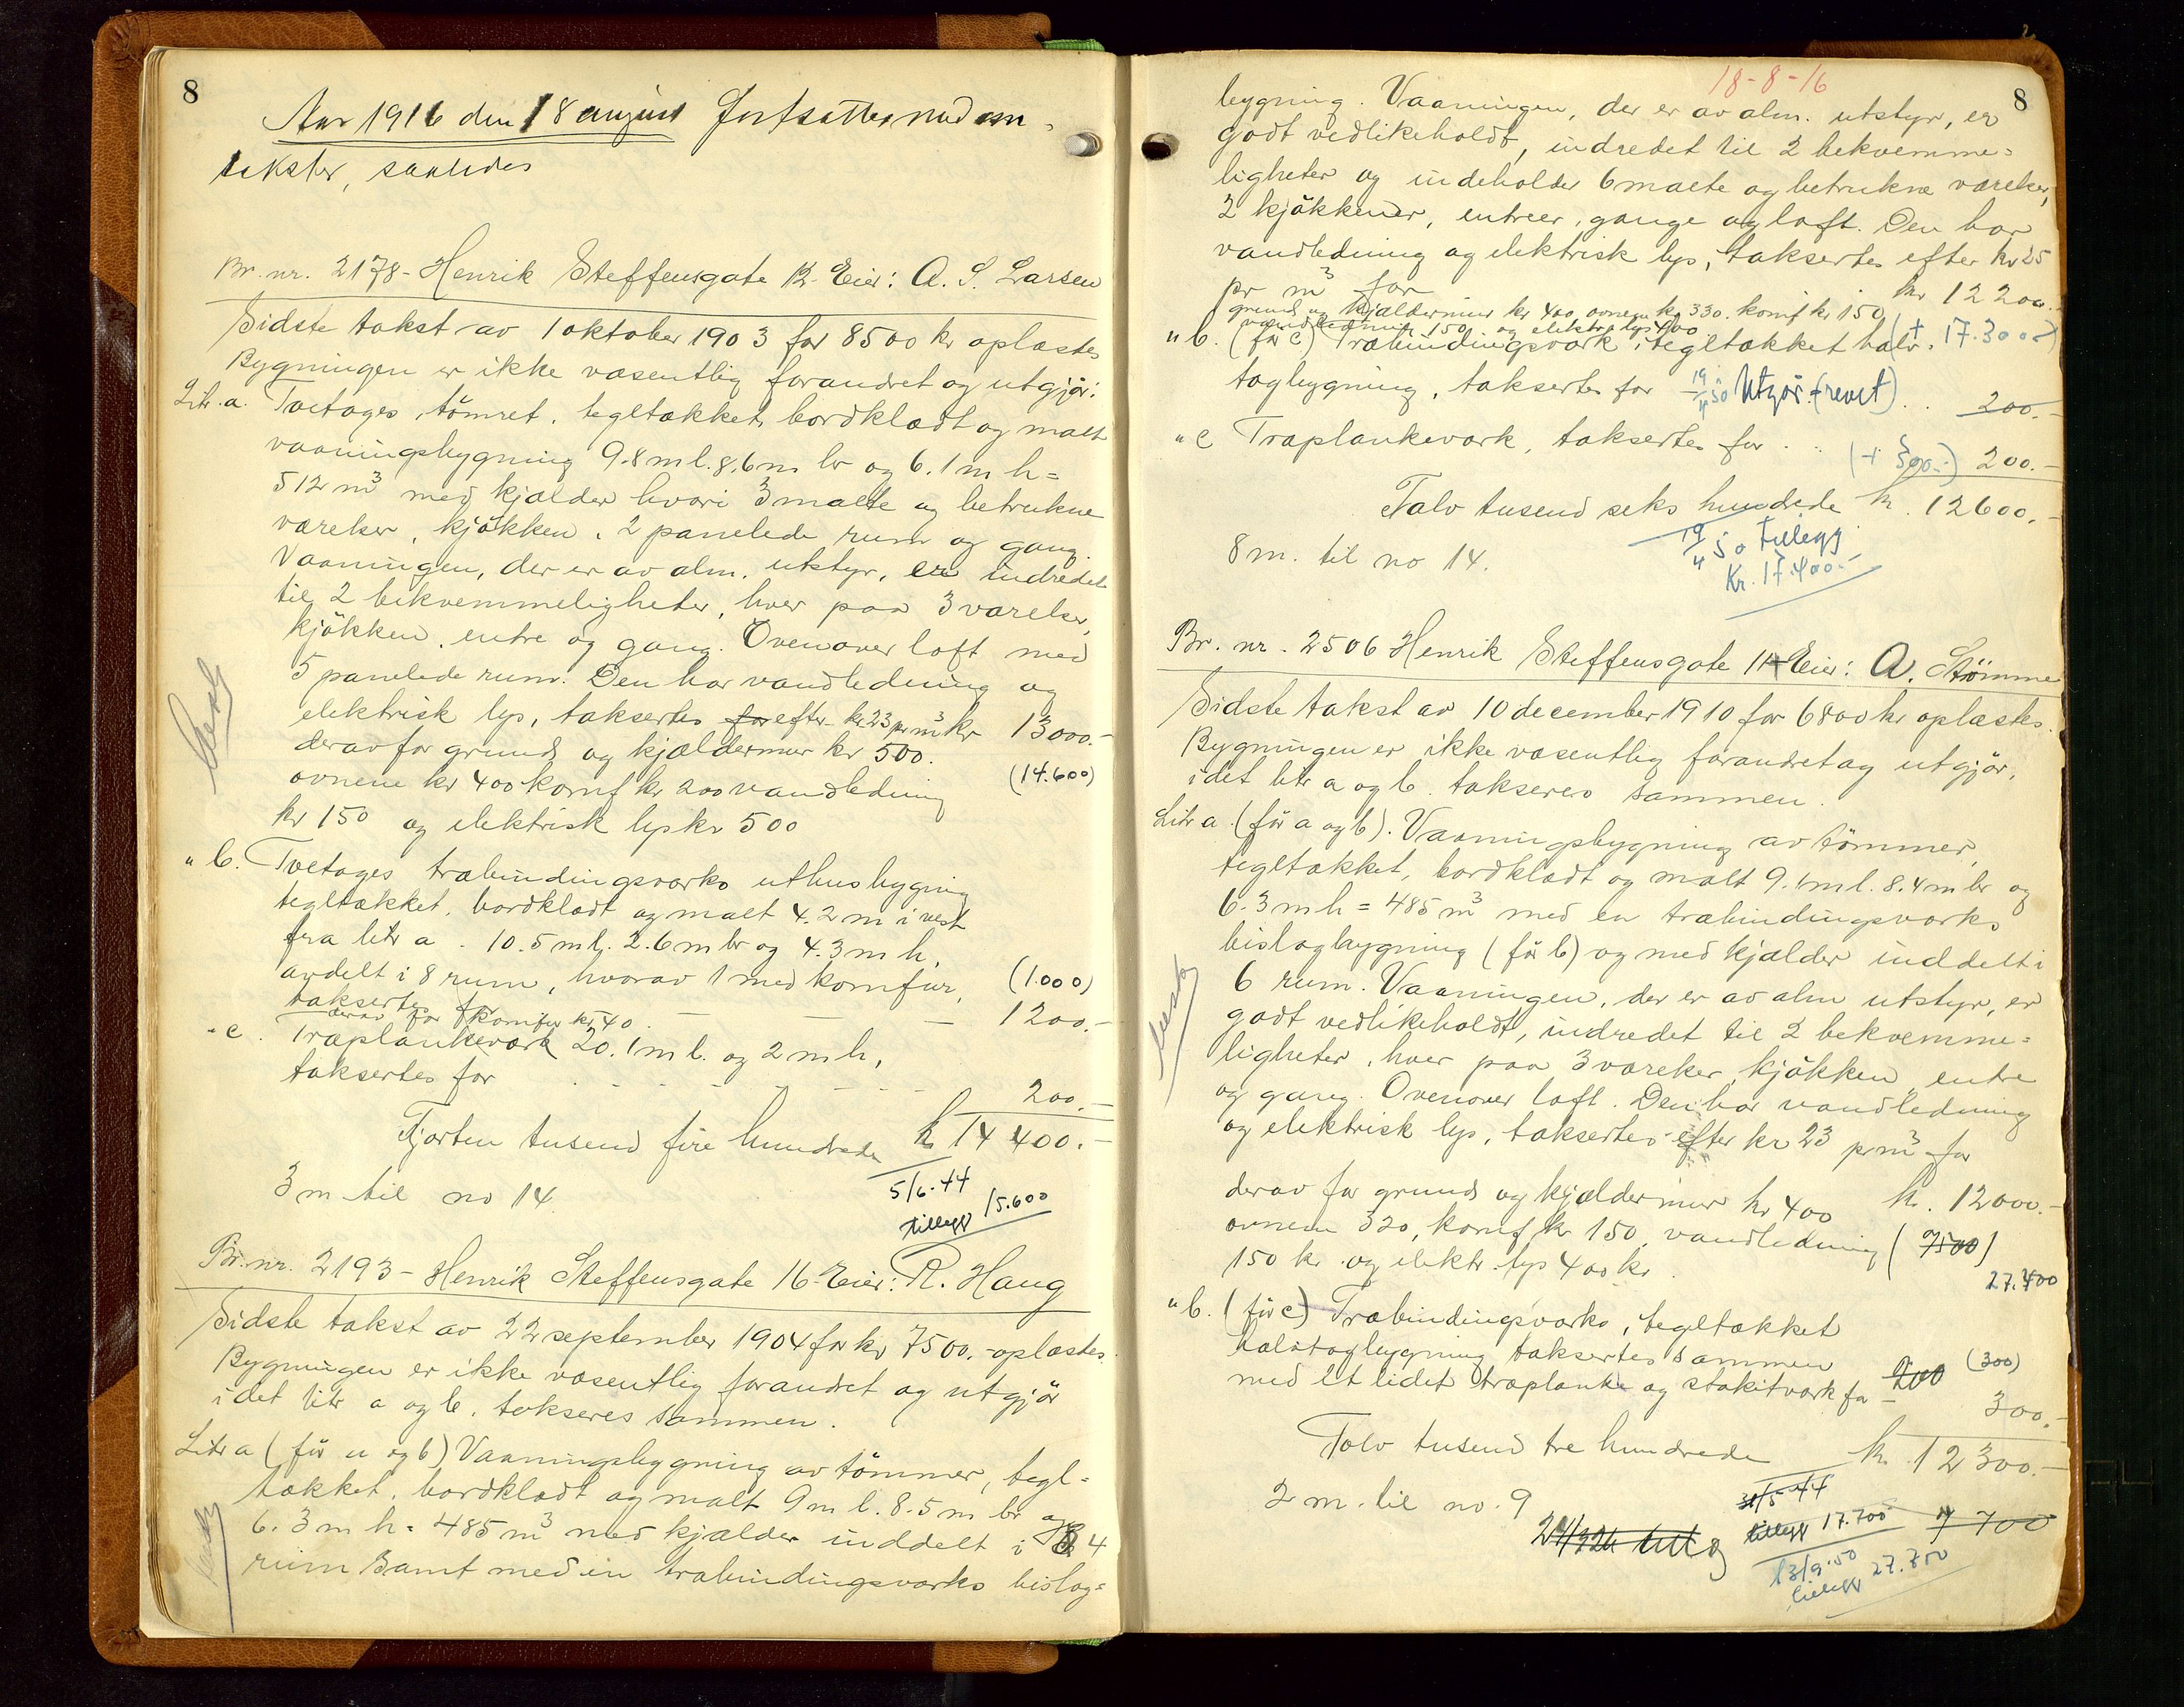 8
Aar 1916 den 18 august fortsattes med om-
takster, saaledes
Br. nr. 2178 - Henrik Steffensgate 12 - Eier: A. S. Larsen
Sidste takst av 1 oktober 1903 for 8500 kr oplæstes
Bygningen er ikke væsentlig forandret og utgjör:
Litr. a. Toetages, tömret, tegltækket, bordklædt og malt
vaaningsbygning 9.8 m l. 8.6 m br og 6.1 m h =
512 m³ med kjælder hvori 3 malte og betrukne
værelser, kjökken, 2 panelede rum og gang.
Vaaningen, der er av alm. utstyr, er indredet
til 2 bekvemmeligheter, hver paa 3 værelser,
kjökken, entre og gang. Ovenover loft med
5 panelede rum. Den har vandledning og
elektrisk lys, taksertes for efter kr 23 pr m³ kr 13000.-
derav for grund og kjældermur kr 500.
(14.600)
ovnene kr 400 komf kr 200 vandledning
kr 150 og elektrisk lys kr 500
" b. Toetages træbindingsverks uthusbygning
tegltækket, bordklædt og malt 4.2 m i vest
fra litr a. 10.5 m l. 2.6 m br og 4.3 m h,
avdelt i 8 rum, hvorav 1 med komfur, (1.000)
taksertes for 1200.-
derav for komfur kr 40
" c. Træplankeværk 20.1 m l. og 2 m h,
taksertes for 200.-
Fjorten tusend fire hundrede kr 14400.-
3 m til no 14.
5/6-44
tillegg 15.600
Br. nr. 2193 - Henrik Steffensgate 16 - Eier: R. Haug
Sidste takst av 22 september 1904 for kr 7500.- oplæstes.
Bygningen er ikke væsentlig forandret og utgjör
idet litr a og b. takseres sammen.
Litr a (för a og b) Vaaningsbygning av tömmer, tegl-
tækket, bordklædt og malt 9 m l. 8.5 m br og
6.3 m h = 485 m³ med kjælder inddelt i 4
rum samt med en træbindingsværks bislag-
18-8-16
8
bygning. Vaaningen, der er av alm. utstyr, er
godt vedlikeholdt, indredet til 2 bekvemme-
ligheter og indeholder 6 malte og betrukne værelser,
2 kjökkener, entreer, gange og loft. Den har
vandledning og elektrisk lys, taksertes efter kr 25
pr m³ for kr 12200.
grund og kjældermur kr 400, ovnene kr 330. komf kr 150
vandledning 150 og elektr. lys 400
" b. (för c) Træbindingsværk, tegltækket halv- (+ 17.300.-)
tagbygning, taksertes for 19/4 50 Utgår (revet) . . 200.-
" c Træplankeværk, taksertes for . . (+ 500.-) 200.-
Tolv tusend seks hundrede kr. 12600.-
8 m. til no 14.
19/4 50 tillegg
Kr. 17.400.-
Br. nr. 2506 Henrik Steffensgate 11 - Eier: A. Strömme
Sidste takst av 10 december 1910 for 6800 kr oplæstes.
Bygningen er ikke væsentlig forandret og utgjör,
idet litr a og b. takseres sammen.
Litr a. (för a og b). Vaaningsbygning av tömmer,
tegltækket, bordklædt og malt 9.1 m l. 8.4 m br og
6.3 m h = 485 m³ med en træbindingsværks
bislagbygning (för b) og med kjælder inddelt i
6 rum. Vaaningen, der er av alm utstyr, er
godt vedlikeholdt, indredet til 2 bekvemme-
ligheter, hver paa 3 værelser, kjökken, entre
og gang. Ovenover loft. Den har vandledning
og elektrisk lys, taksertes efter kr 23 pr m³ for
kr. 12000.-
derav for grund og kjældermur kr 400
ovnene 320, komf kr 150, vandledning (7500)
150 kr. og elektr. lys 400 kr.
27.400
" b. (för c) Træbindingsværks, tegltækket
halvtagbygning taksertes sammen (300)
med et lidet træplanke og stakitværk for - 200 300.-
Tolv tusend tre hundrede kr. 12300.-
2 m. til no. 9
31/5 44
tillegg 17.700
7700
13/9-50
tillegg 27.700